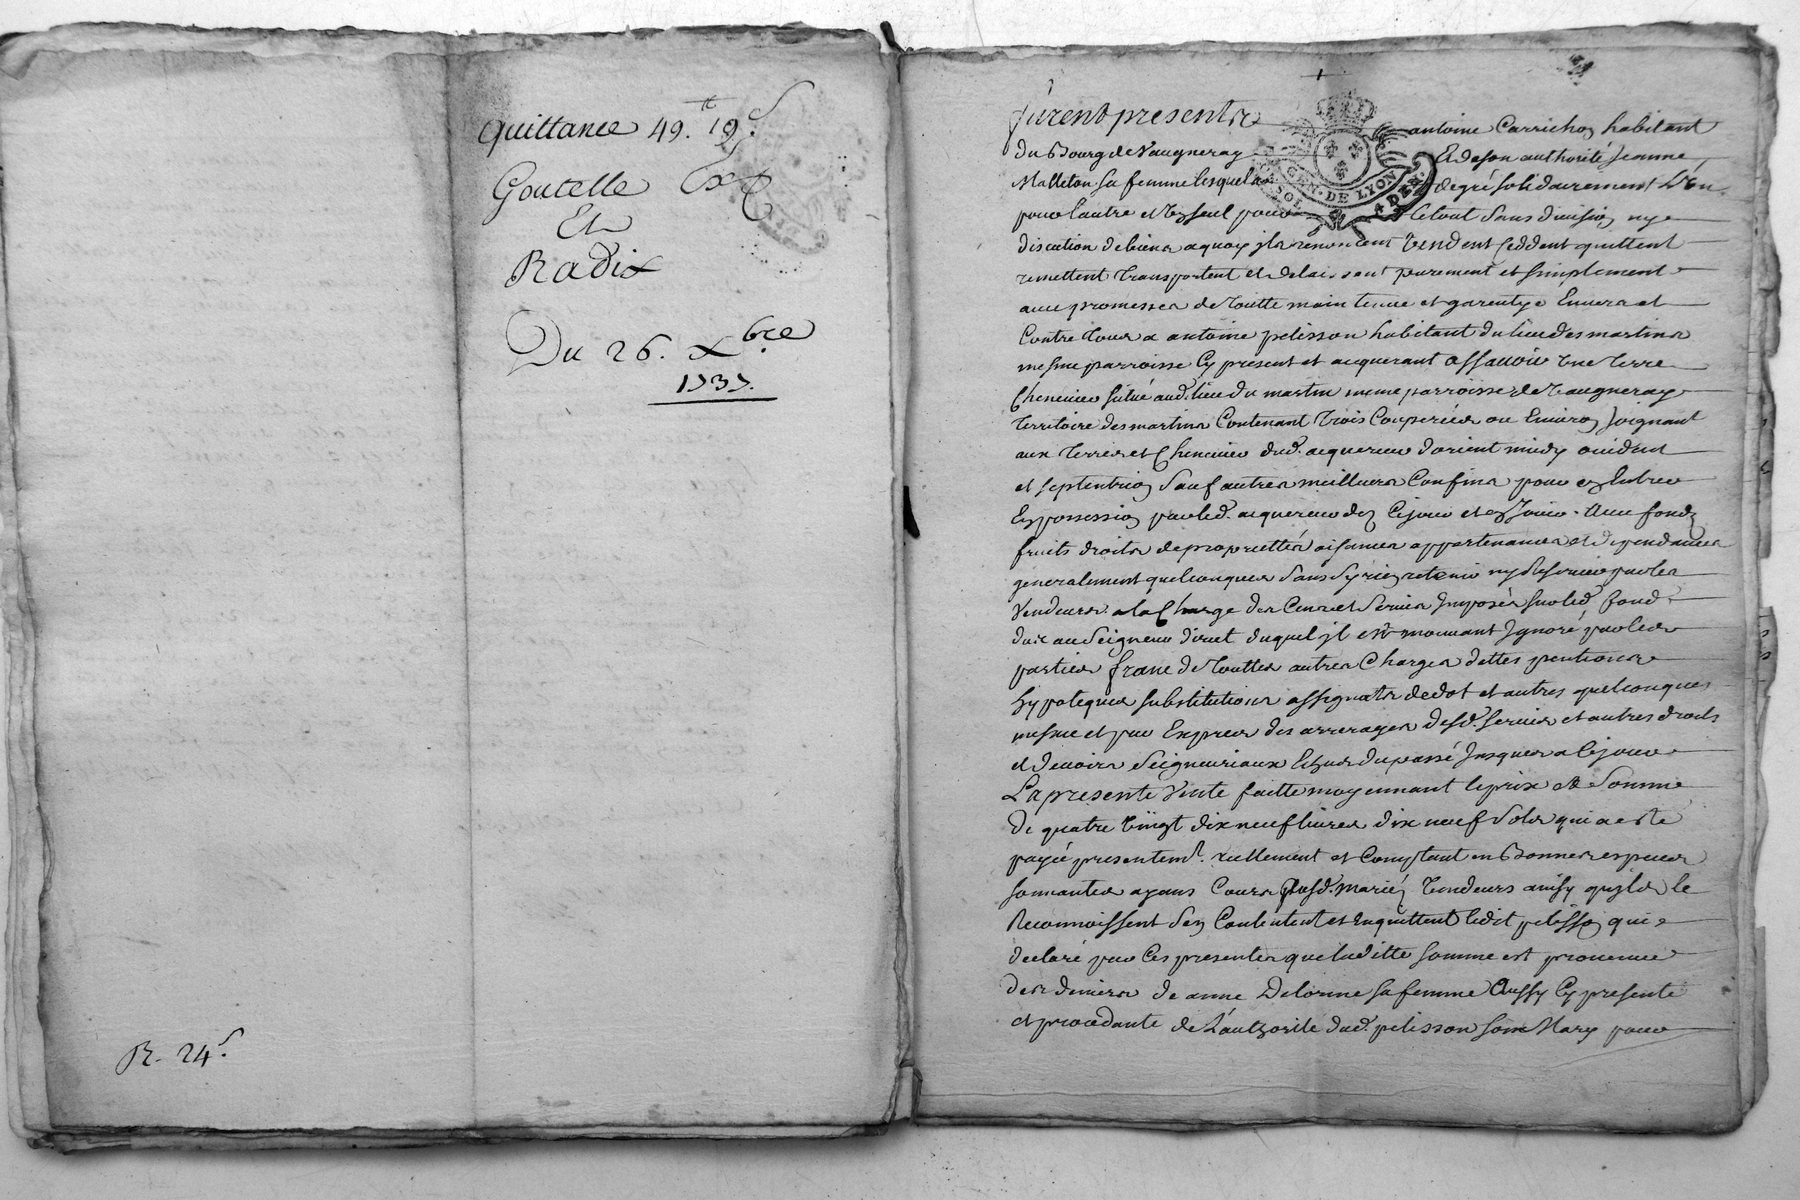 Quittance 49.# 19.s
Goutelle
Et
Radix
Du 26. Xbre
1737.
R. 24s.
furent presents antoine Carrichon habitant
du Bourg de Vaugneray Et de son authorité Jeanne
Malleton sa femme lesquels de gré solidairement L'un
GEN. DE LYON
SOL
4 DEN.
pour l'autre et un seul pour le tout sans division ny
discution de biens a quoy jls renoncent vendent ceddent quittent
remettent transportent et delaissent purement et simplement
avec promesses de toutte maintenue et garentye Envers et
Contre tous a antoine pelisson habitant du lieu des martins
mesme parroisse Cy present et acquerant assavoir une terre
Chenevier situé aud. lieu du martin meme parroisse de Vaugneray
territoire des martins Contenant trois Couperées ou Environ Joignant
aux terres et Chenevier dud. acquereur d'orient midy occident
et septentrion sauf autres meilleurs Confins pour en Entrer
En possession par led. acquereur dez Cejour et en Jouir. avec fondz
fruits droits de proprietté aisances appartenances et dependances
generalement quelconques sans sy rien retenir ny reserver par les
Vendeurs a la Charge des Cens et Servis Imposés sur led. fond
dus au Seigneur direct duquel jl est mouvant Ignoré par les
parties franc de touttes autres Charges dettes pentions
hypoteques substitutions assignats de dot et autres quelconques
mesme et par Exprès des arrerages desd. Servis et autres droits
et devoirs Seigneuriaux Echus du passé Jusques a Cejour
La presente Vente faitte moyennant le prix et Somme
De quatre vingt dix neuf livres dix neuf sols qui a esté
payée presentemt. réellement et Comptant en Bonnes especes
sonnantes ayans Cours ausd. mariés Vendeurs ainsy qu'jls le
Reconnoissent s'en Contentent et Enquittent ledit pelisson qui
declaré par Ces presentes que laditte somme est provenue
des deniers de anne Delorme sa femme Aussy Cy presente
et procedante de L'authorité dud. pelisson son Mary pour